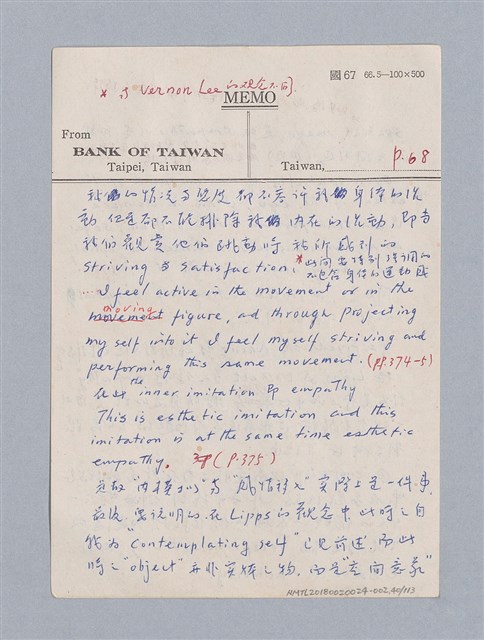 國 67 66.5—100×500
* 与 Vernon Lee 的观念不同.
MEMO
From
BANK OF TAIWAN
Taipei, Taiwan
Taiwan,
p.68
我的情况与 都不容许我身体的活
動 但是却不能排除我内在的活動, 即当
我们觀賞他们跳動時 我所感到的
striving & satisfaction. *此同
不包含身体的運動感
....I feel active in the movement or in the
moving
movement figure, ad through projecting
my self into it I feel myself striving and
performing this same movement. (pp.374-5)
在此 the inner imitation 即 empathy
This is esthetic imitation and this
imitation is at the same time esthetic
empathy. (p.375)
是故 "内模仿" 与 "感情移入" 实際上是一件事.
最後, 要说明的. 在 Lipps 的觀念中 此時之自
我为 "contemplating self" 已见前述. 而此
時之 "object" 并非实体之物. 而是 "空间意象"
HMTL20180020024-002.40/113